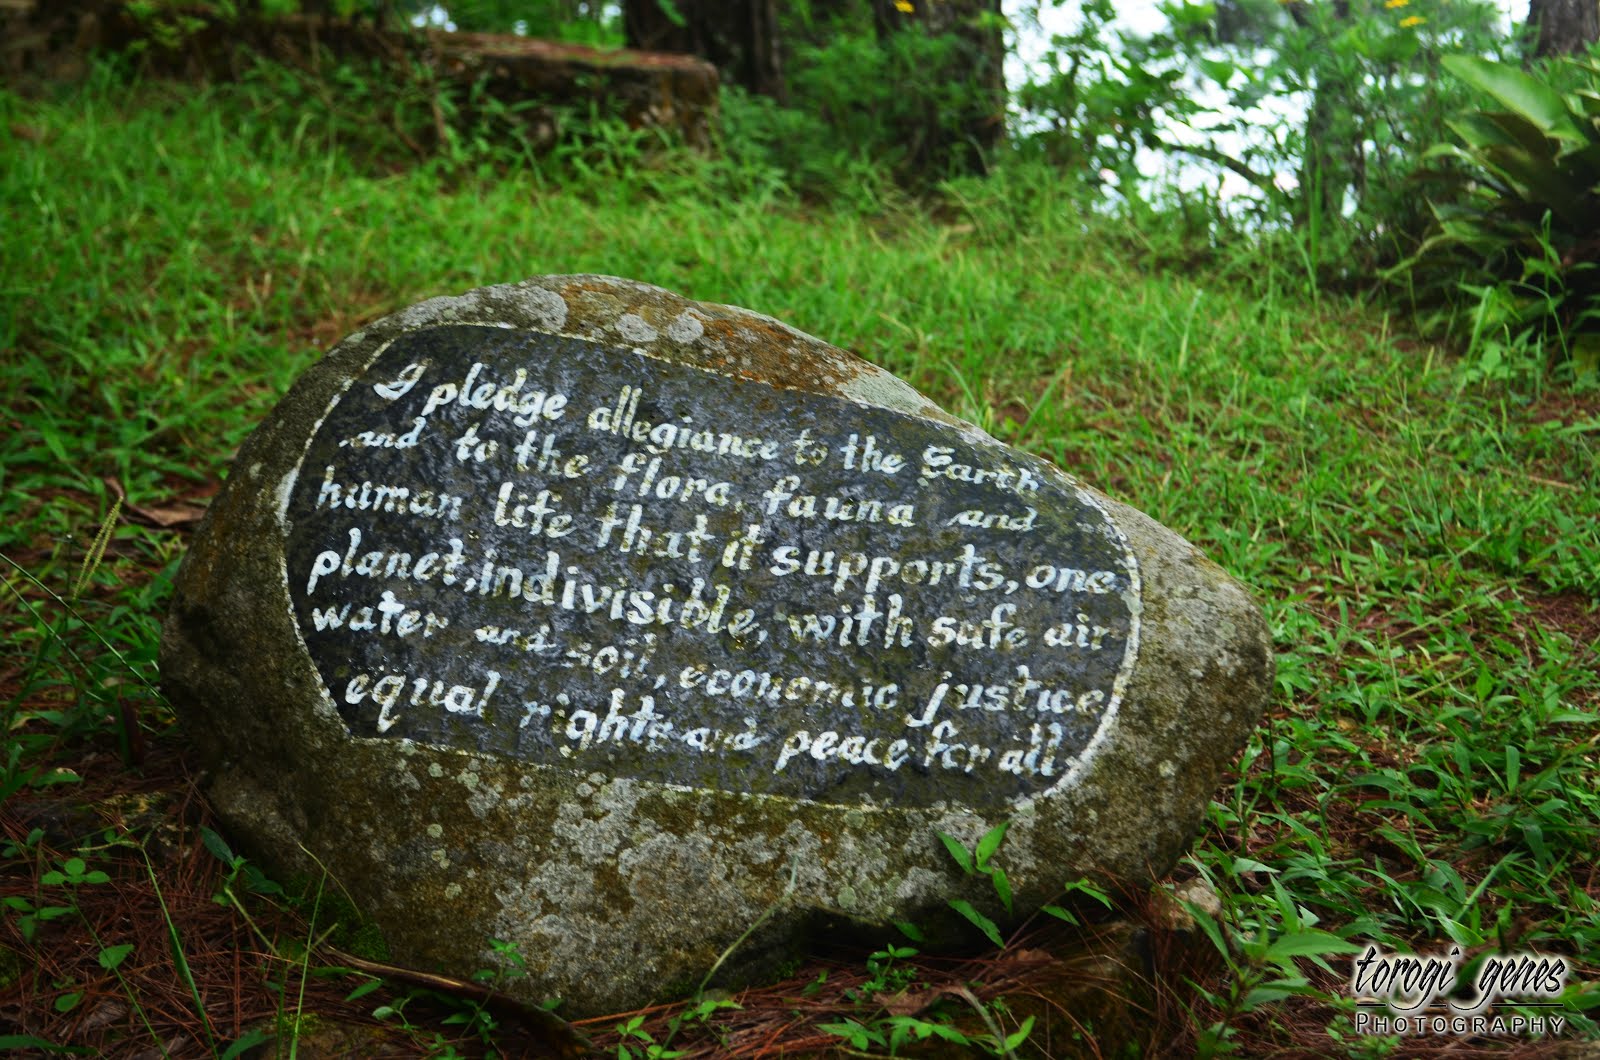 I pledge allegiance to the Earth
and to the flora, fauna and
human life that it supports, one
planet, indivisible, with safe air
water and soil, economic justice
equal rights and peace for all
torogi genes
PHOTOGRAPHY